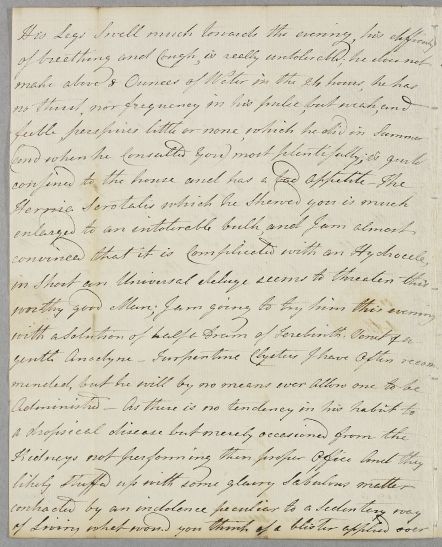 His Legs Swell much towards the evening, his difficulty
of breathing and Cough, is really intolerable, he does not
make above 8 Ounces of Water in the 24 hours, he has
no thirst, nor frequency in his pulse, but weak, and
feeble perspires little or none, which he did in Summer
and when he Consulted You most plentifully, is quite
confined to the house and has a bad appetite - The
Hernia Scrotales which he Shewed you is much
enlarged to an intolerable bulk and I am almost
convinced that it is Complicated with an Hydrocele,
in Short an Universal deluge seems to threaten this
worthy good Man; I am going to try him this evening
with a Solution of half a Dram of Terebinth. Venet &
gentle Anodyne - Turpentine Clysters I have Often recom
mended, but he will by no means ever allow one to be
Administred - As there is no tendency in his habit to
a dropsical disease but merely occasioned from the
Kidneys not performing their proper Office and they
likely Stuffed up with some glairy Sabulous matter
contracted by an indolence peculiar to a Sedentary way
of Living what would you think of a blister applied over